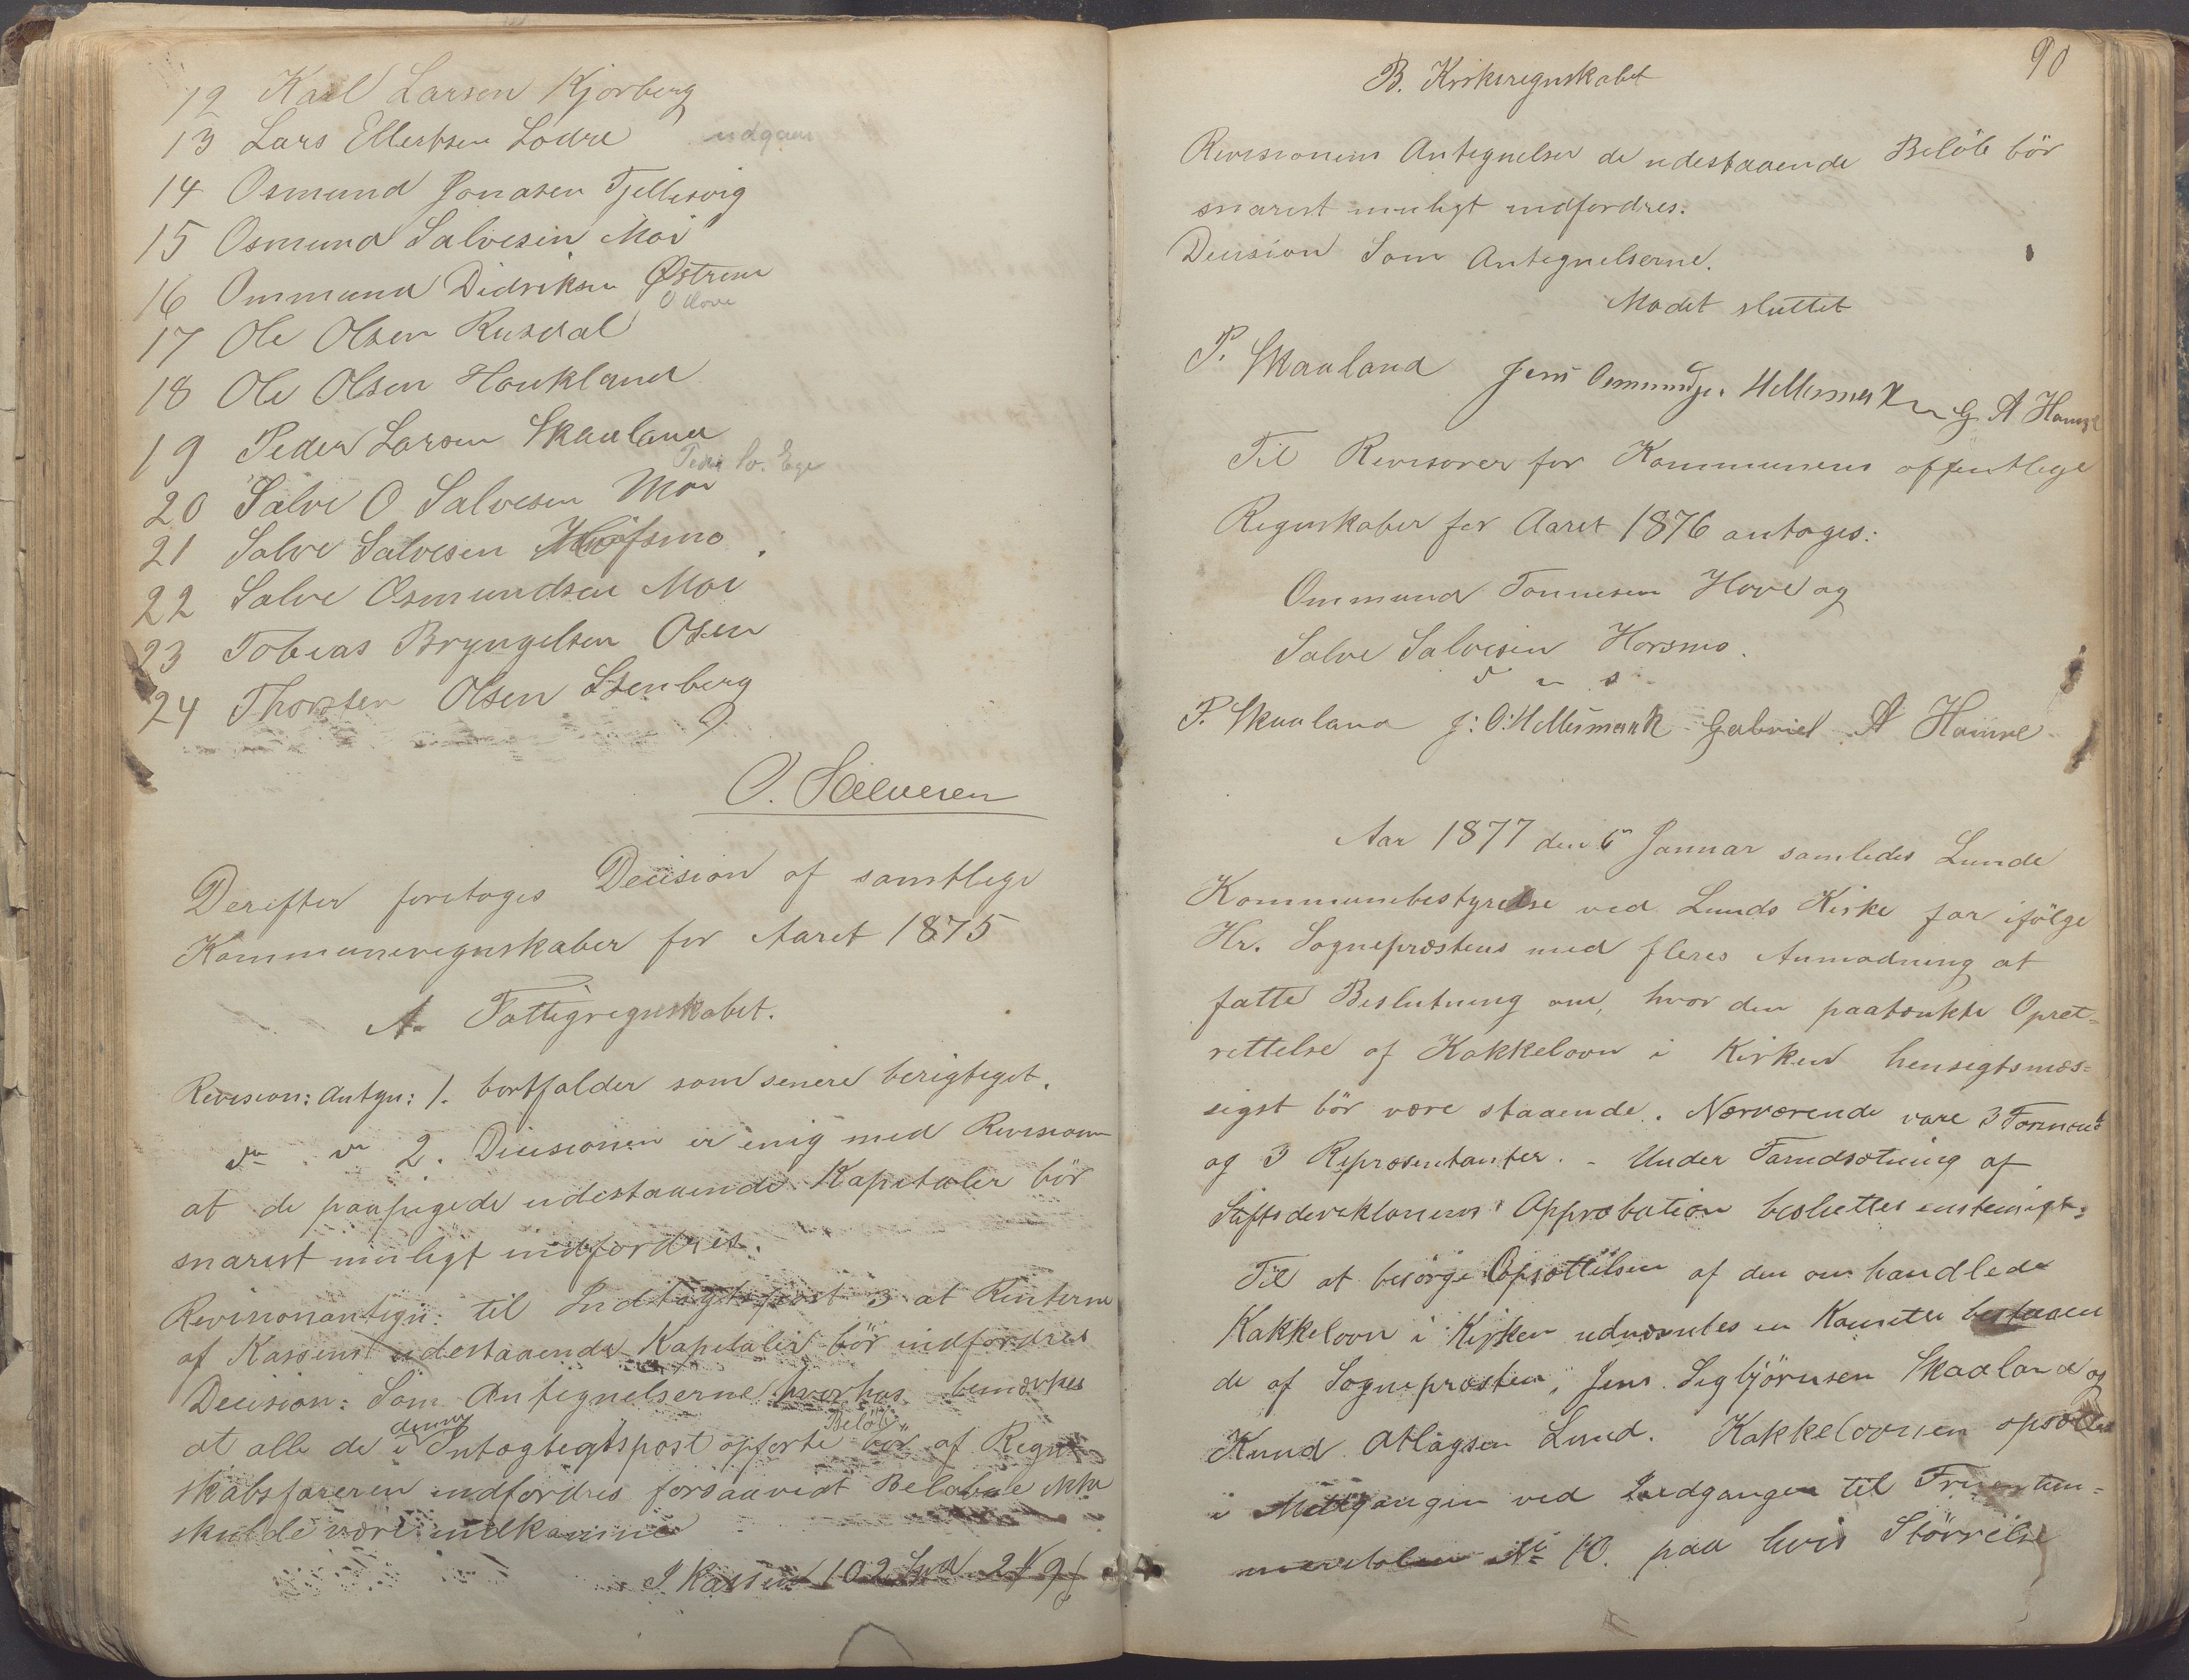 12 Karl Larsen Kjørberg
13 Lars Ellertsen Lodre udgaar
14 Osmund Jonasen Tjellesvig
15 Osmund Salvesen Moi
16 Ommund Didriksen Østrem
O Hove
17 Ole Olsen Rusdal
18 Ole Olsen Haukland
19 Peder Larsen Skaaland
Peder So. Ege
20 Salve O Salvesen Moi
21 Salve Salvesen Horsmo
22 Salve Osmundsen Moi
23 Tobias Bryngelsen Osen
24 Thorsten Olsen Stenberg
O. Salvesen
Derefter foretoges Decision af samtlige
Kommuneregnskaber for Aaret 1875
A. Fattigregnskabet.
Revision: Antgn: 1. bortfalder som senere berigtiget.
do do 2. Decisionen er enig med Revisionen
at de paapegede udestaaende Kapitaler bör
snarest muligt indfordres.
Revisionantegn: til Indtægtspost 3 at Renterne
af Kassens udestaaende Kapitaler bör indfordres
Decision: Som Antegnelserne hvorhos bemærkes
at alle de i denne Intægtegtspost opførte Beløb bör af Regn-
skabsføreren indfordres forsaavidt Beløbene ikke
skulde være indkomne
I Kassen 102 Spd 2 # 9 s
90
B. Kirkeregnskabet
Revisionens Antegnelser de udestaaende Belöb bör
snarest muligt indfordres.
Decision Som Antegnelserne.
Mødet sluttet
P. Skaaland Jens Osmundsen Hellesmark G A Hamre
Til Revisorer for Kommunens offentlige
Regnskaber for Aaret 1876 antages:
Ommund Tonnesen Hove og
Salve Salvesen Horsmo.
d u s
P. Skaaland J: O: Hellesmark Gabriel A Hamre
Aar 1877 den 6te Januar samledes Lunde
Kommunebestyrelse ved Lunds Kirke for ifölge
Hr. Sogneprestens med fleres Anmodning at
fatte Beslutning om, hvor den paatænkte Opret-
rettelse af Kakkelovn i Kirken hensigtsmæs-
sigst bör være staaende. Nærværende vare 3 Formænd
og 3 Repræsentanter. - Under Forudsætning af
Stiftsdirektionens Approbation besluttes enstemigt:
Til at besörge Opsættelsen af den omhandlede
Kakkelovn i Kirken udnævntes en Komite bestaaen
de af Sognepræsten, Jens Sigbjörnsen Skaaland og
Knud Atlagsen Lund. Kakkelovnen opsættes
i Midtgangen ved Indgangen til Fruentim-
merstolen No 10. paa hvis Störrelse